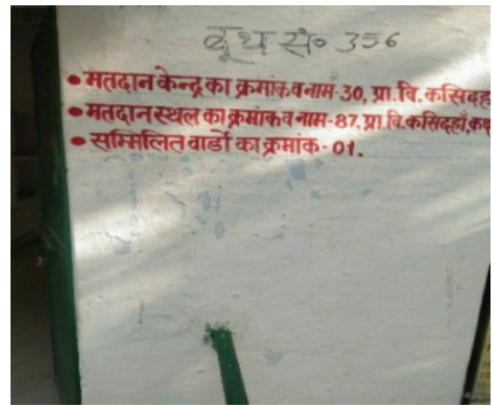 बूथ सं० 356
• मतदान केन्द्र का क्रमांक व नाम-30, प्रा.वि. कसिदह
• मतदान स्थल का क्रमांक व नाम-87, प्रा.वि.कसिदहाँ,कक्ष
• सम्मिलित वार्डो का क्रमांक-01.